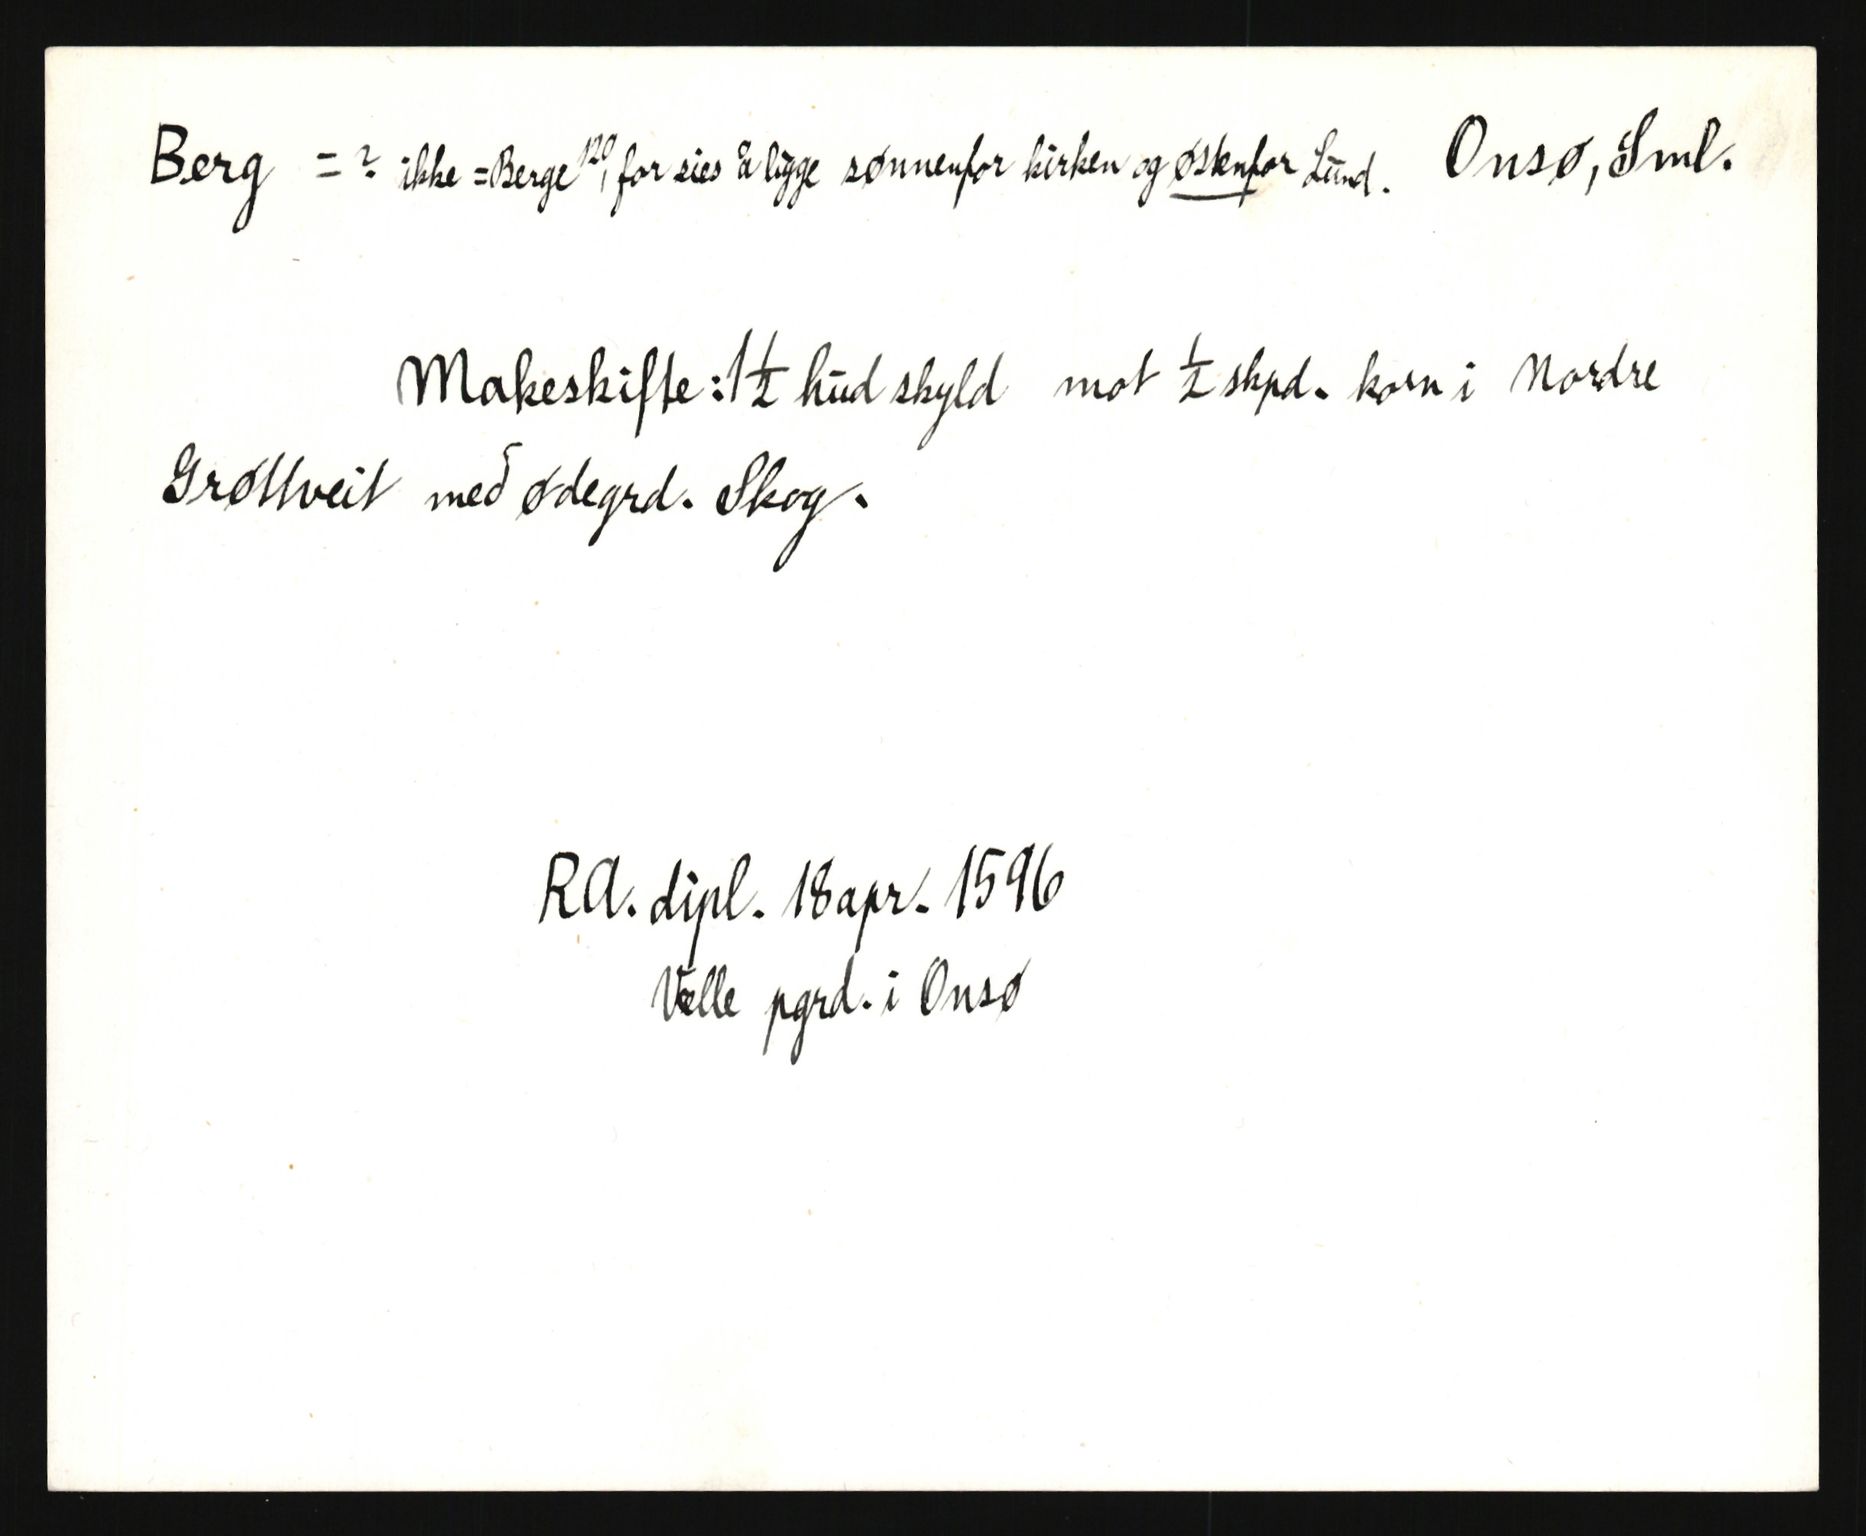 Berg = ? ikke = Berge 120, for sies å ligge sønnenfor kirken og østenfor Lund. Onsø, Sml.
Makeskifte: 1½ hud skyld mot ½ skpd. korn i Nordre
Grøttveit med ødegrd. Skog.
RA. dipl. 18 apr. 1596
Vælle pgrd. i Onsø